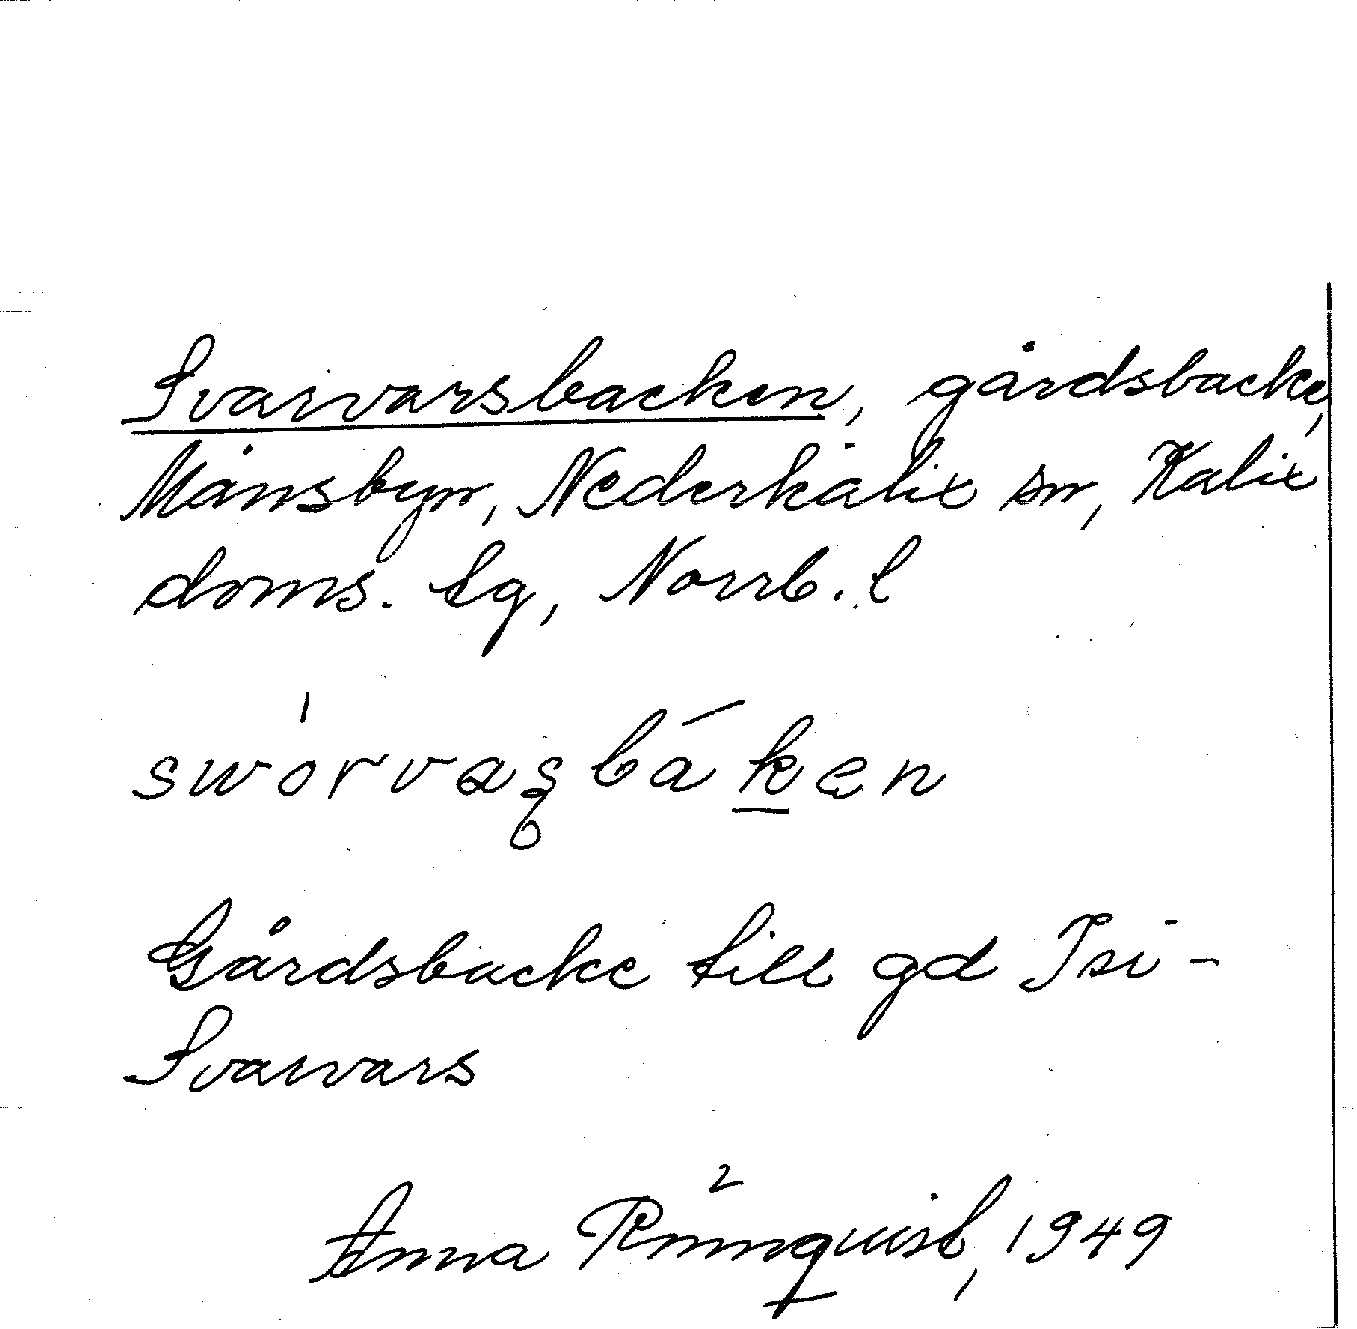 Svarvarsbacken, gårdsbacke,
Månsbyn, Nederkalix sn, Kalix
doms. tg, Norrb. l
Gårdsbacke till gd Isi-
Svarvars
Anna Rönnquist, 1949